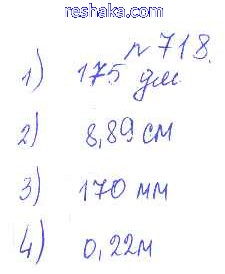 reshaka.com
№ 718.
1) 175 дм
2) 8,89 см
3) 170 мм
4) 0,22м